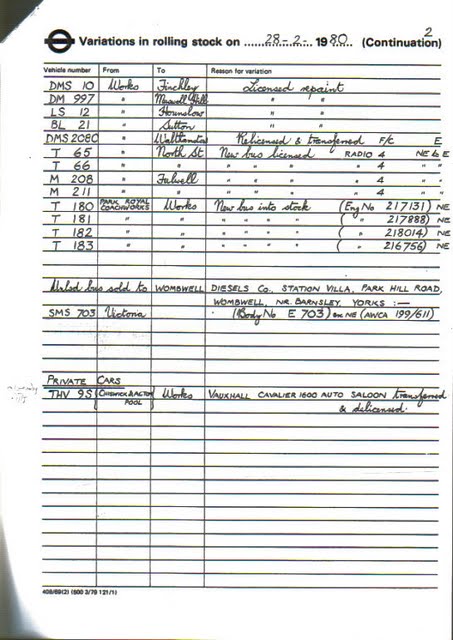 2
Variations in rolling stock on 28-2- 1980 (Continuation)
Vehicle number From To Reason for variation
DMS 10 Works Finchley Licensed repaint
DM 997 " Muswell Hill " "
LS 12 " Hounslow " "
BL 21 " Sutton " "
DMS 2080 " Walthamstow Relicensed & transferred F/C E
T 65 " North St New bus licensed RADIO 4 NE to E
T 66 " " " " " " 4 " "
M 208 " Fulwell " " " " 4 " "
M 211 " " " " " " 4 " "
T 180 PARK ROYAL COACHWORKS Works New bus into stock (Eng No 217131) NE
T 181 " " " " " " ( " 217888) NE
T 182 " " " " " " ( " 218014) NE
T 183 " " " " " " ( " 216756) NE
bus sold to WOMBWELL DIESELS Co., STATION VILLA, PARK HILL ROAD,
WOMBWELL, NR. BARNSLEY, YORKS :—
SMS 703 Victoria (Body No E 703) ex NE (AWCA 199/611)
PRIVATE CARS
THV 9S (CHISWICK & ACTON POOL) Works VAUXHALL CAVALIER 1600 AUTO SALOON transferred
& delicensed.
408/69(2) (500 3/79 121/1)